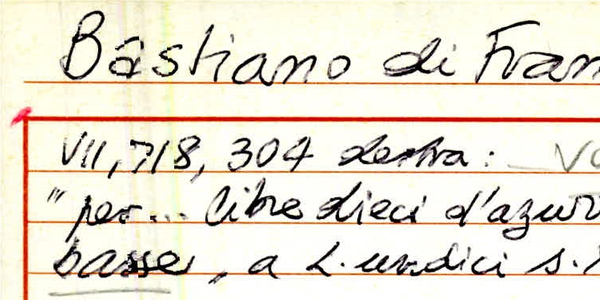 Bastiano di Fran
VII, 718, 304 destra: Vo
"per... libre dieci d'azur
basse, a L. undici s.